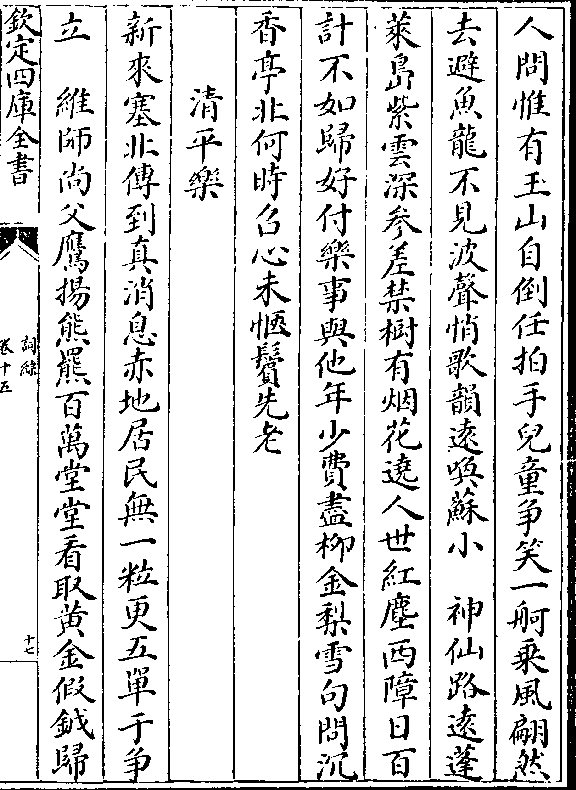 人問惟有玉山自倒任拍手兒童争笑一舸乗風翩然
去避魚龍不見波聲悄歌韻遠喚蘇小　神仙路遠蓬
萊島紫雲深参差禁樹有烟花遶人世紅塵西障日百
計不如歸好付樂事與他年少費盡栁金梨雪句問沉
香亭北何時召心未愜鬢先老
清平樂
新來塞北傳到真消息赤地居民無一粒更五單于争
立　維師尚父鷹揚熊羆百萬堂堂看取黄金假鉞歸
欽定四庫全書
詞綜
卷十五
十七